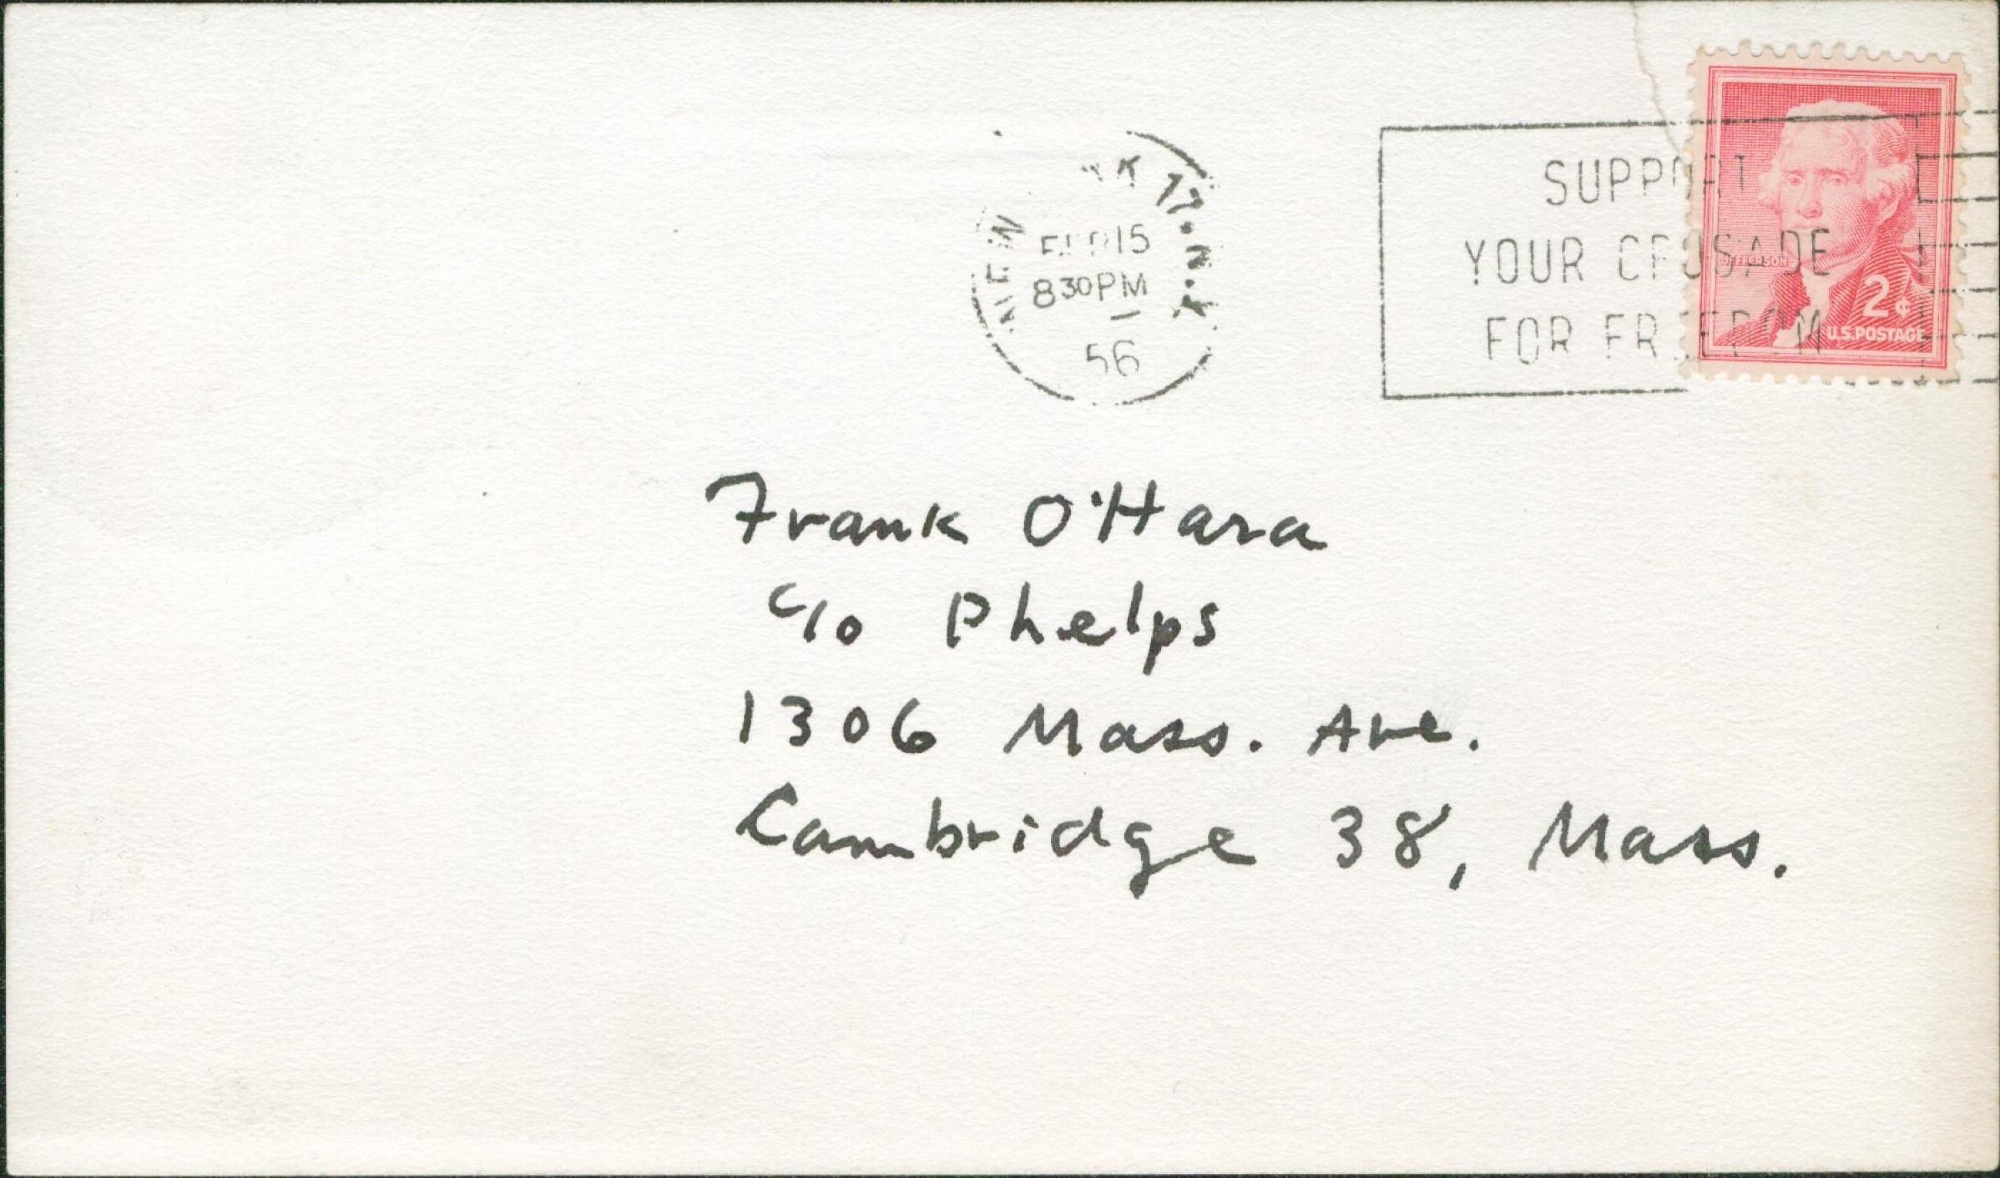 NEW YORK 17, N.Y.
FEB 15
8 30 PM
56
SUPPORT
YOUR CRUSADE
FOR FREEDOM
JEFFERSON
2¢
U.S. POSTAGE
Frank O'Hara
c/o Phelps
1306 Mass. Ave.
Cambridge 38, Mass.